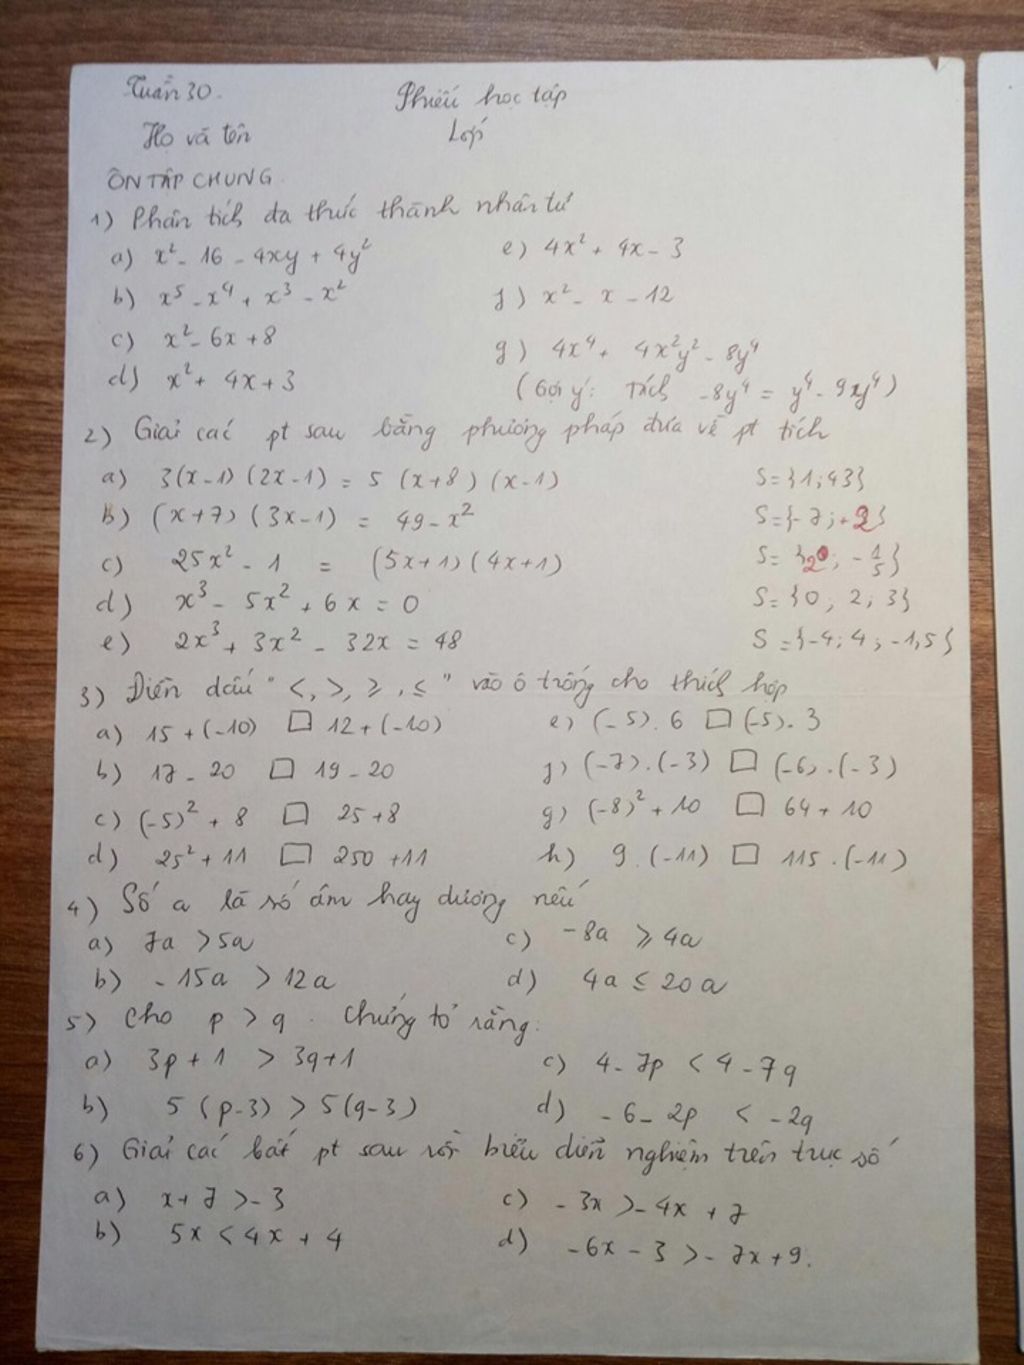 Tuần 30. Phiếu học tập
Họ và tên Lớp
ÔN TẬP CHUNG
1) Phân tích đa thức thành nhân tử
a) x² - 16 - 4xy + 4y² e) 4x² + 4x - 3
b) x⁵ - x⁴ + x³ - x² f) x² - x - 12
c) x² - 6x + 8 g) 4x⁴ + 4x²y² - 8y⁴
d) x² + 4x + 3 (Gợi ý: Tách -8y⁴ = y⁴ - 9y⁴)
2) Giải các pt sau bằng phương pháp đưa về pt tích
a) 3(x-1)(2x-1) = 5(x+8)(x-1) S = {1; 43}
b) (x+7)(3x-1) = 49 - x² S = {-7; +2}
c) 25x² - 1 = (5x+1)(4x+1) S = {2; -1/5}
d) x³ - 5x² + 6x = 0 S = {0; 2; 3}
e) 2x³ + 3x² - 32x = 48 S = {-4; 4; -1,5}
3) Điền dấu "<, >, ≥, ≤" vào ô trống cho thích hợp
a) 15 + (-10) □ 12 + (-10) e) (-5) . 6 □ (-5) . 3
b) 17 - 20 □ 19 - 20 f) (-7) . (-3) □ (-6) . (-3)
c) (-5)² + 8 □ 25 + 8 g) (-8)² + 10 □ 64 + 10
d) 25² + 11 □ 250 + 11 h) 9 . (-11) □ 115 . (-11)
4) Số a là số âm hay dương nếu
a) 7a > 5a c) -8a ≥ 4a
b) -15a > 12a d) 4a ≤ 20a
5) Cho p > q. Chứng tỏ rằng:
a) 3p + 1 > 3q + 1 c) 4 - 7p < 4 - 7q
b) 5(p-3) > 5(q-3) d) -6 - 2p < -2q
6) Giải các bất pt sau rồi biểu diễn nghiệm trên trục số
a) x + 7 > -3 c) -3x > -4x + 7
b) 5x < 4x + 4 d) -6x - 3 > -7x + 9.